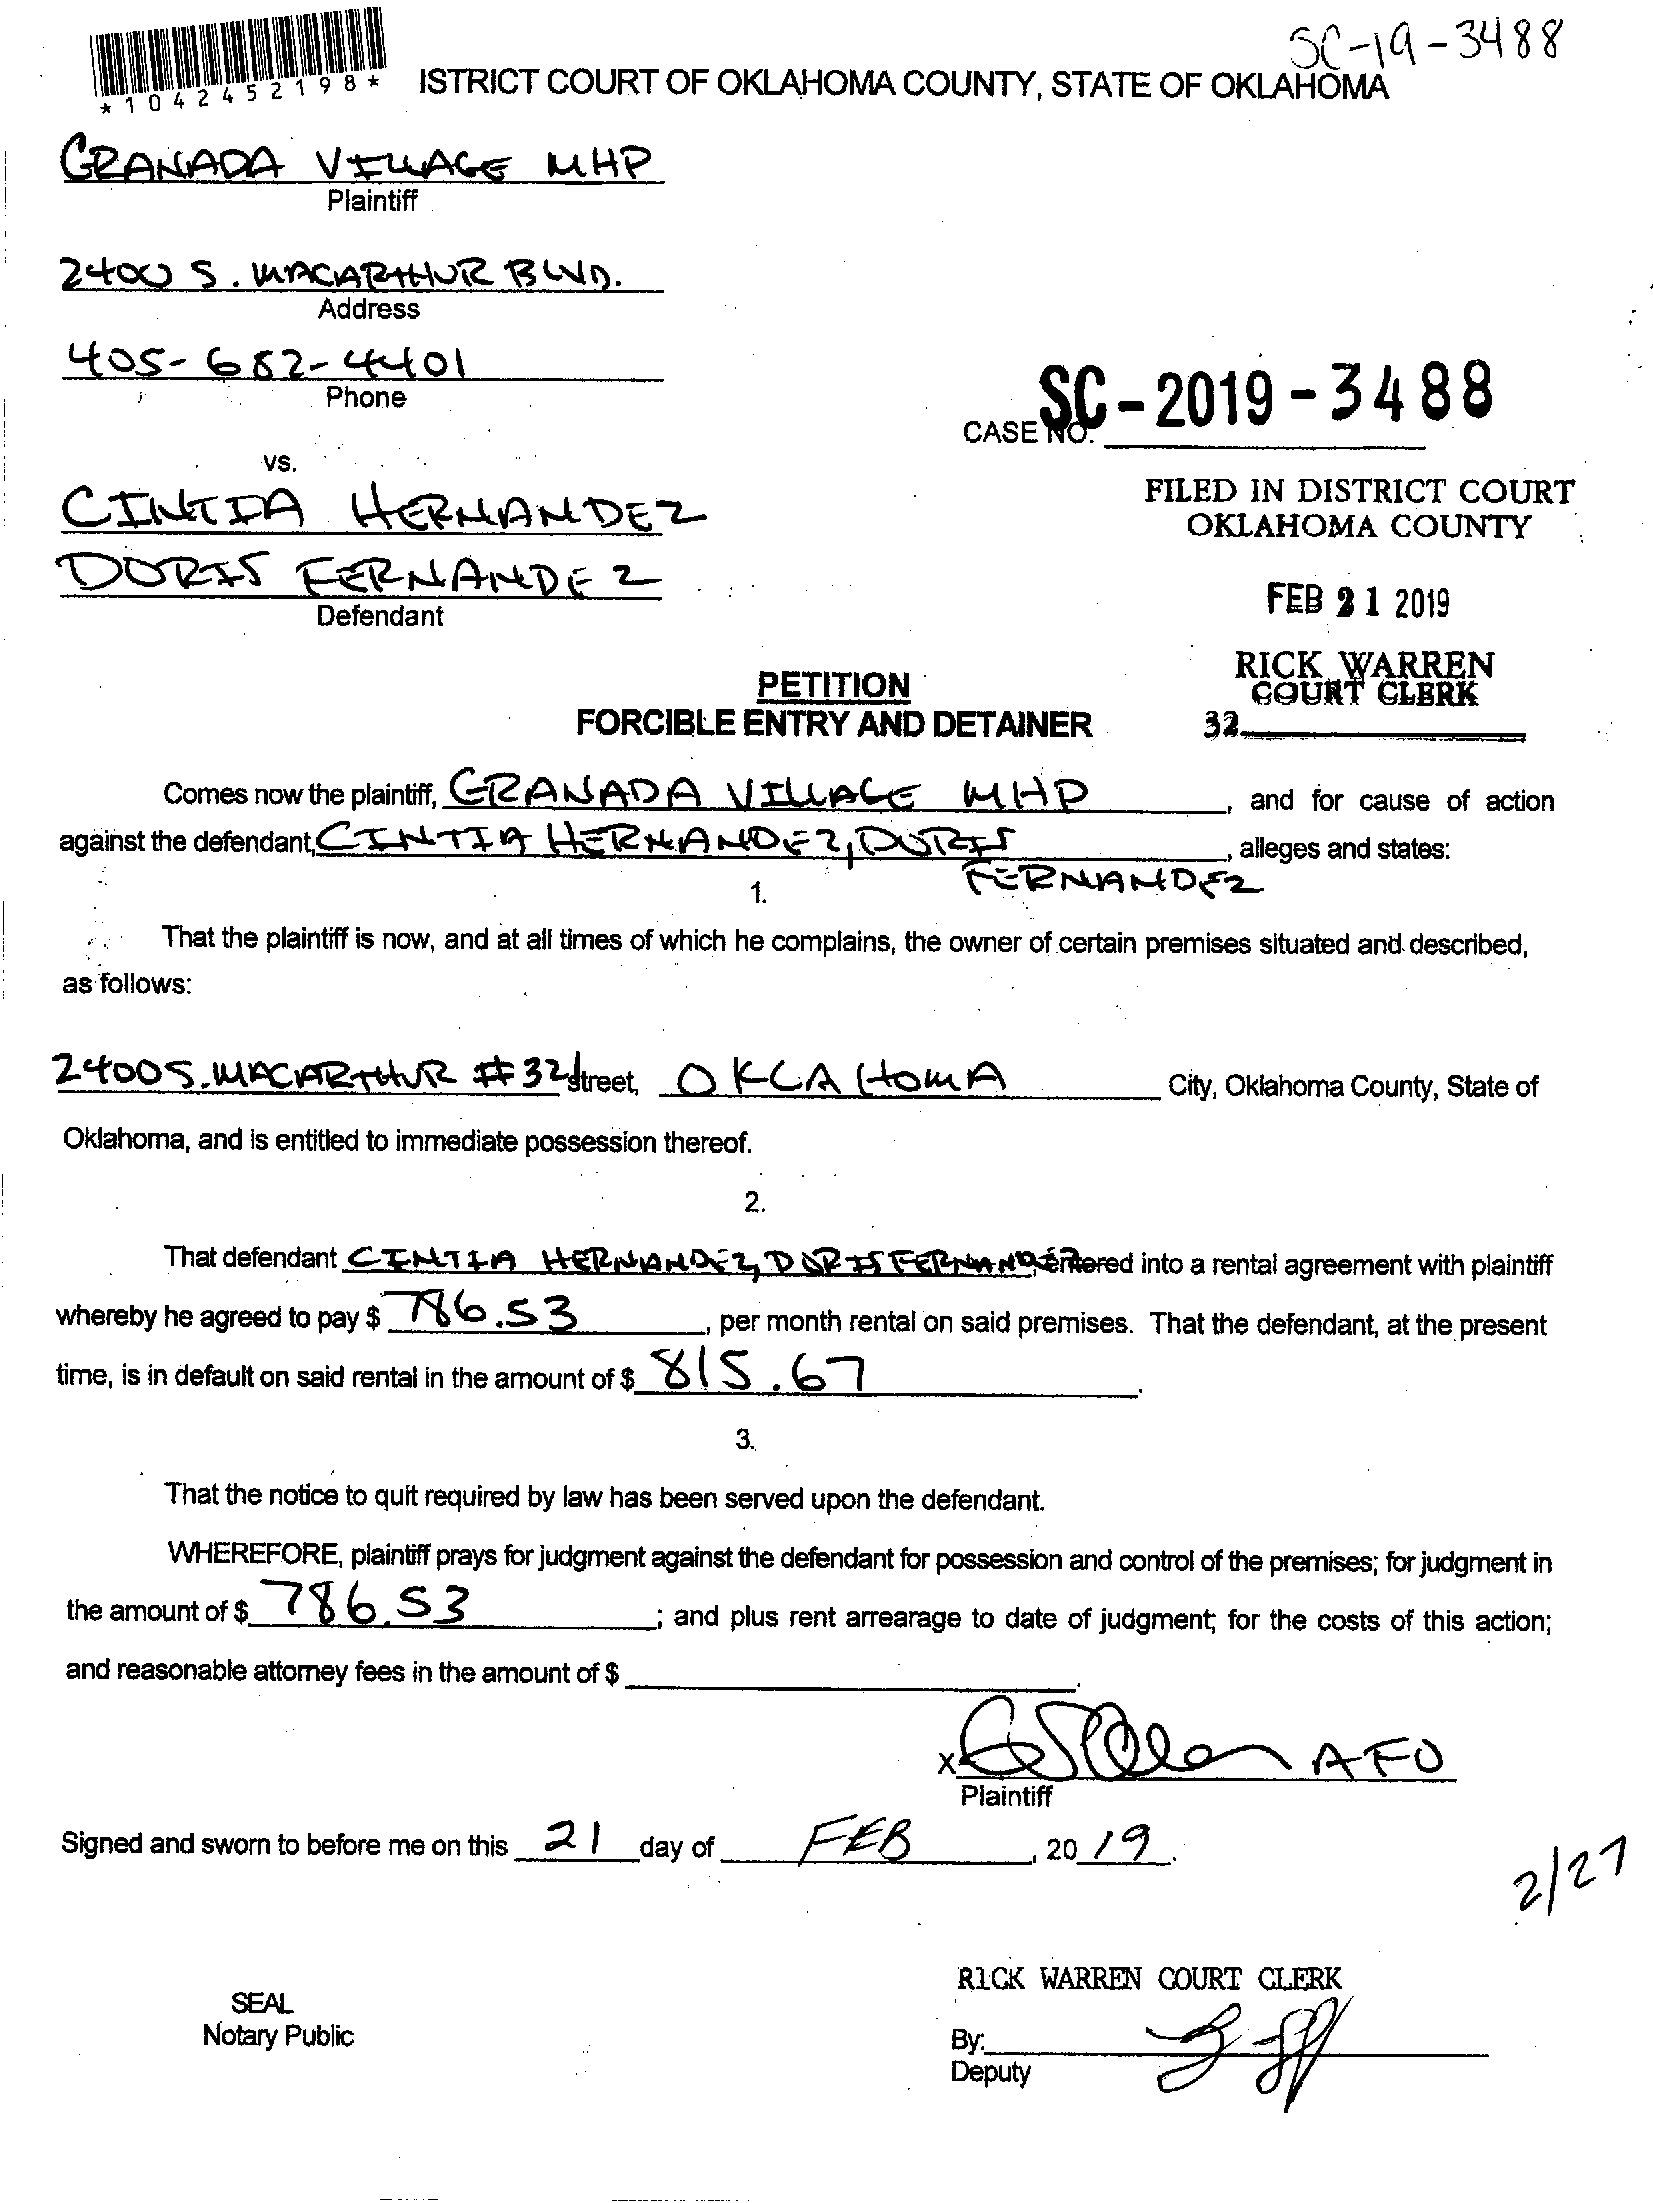 SC-19-3488
*1042452198*
ISTRICT COURT OF OKLAHOMA COUNTY, STATE OF OKLAHOMA
GRANADA VILLAGE MHP
Plaintiff
2400 S. MACARTHUR BLVD.
Address
405-682-4401
Phone
SC-2019-3488
CASE NO.
vs.
CINTIA HERNANDEZ
DORIS FERNANDEZ
Defendant
FILED IN DISTRICT COURT
OKLAHOMA COUNTY
FEB 21 2019
RICK WARREN
COURT CLERK
32
PETITION
FORCIBLE ENTRY AND DETAINER
Comes now the plaintiff, GRANADA VILLAGE MHP, and for cause of action
against the defendant, CINTIA HERNANDEZ, DORIS FERNANDEZ, alleges and states:
1.
That the plaintiff is now, and at all times of which he complains, the owner of certain premises situated and described,
as follows:
2400 S. MACARTHUR #32 street, OKLAHOMA City, Oklahoma County, State of
Oklahoma, and is entitled to immediate possession thereof.
2.
That defendant CINTIA HERNANDEZ, DORIS FERNANDEZ entered into a rental agreement with plaintiff
whereby he agreed to pay $ 786.53, per month rental on said premises. That the defendant, at the present
time, is in default on said rental in the amount of $ 815.67.
3.
That the notice to quit required by law has been served upon the defendant.
WHEREFORE, plaintiff prays for judgment against the defendant for possession and control of the premises; for judgment in
the amount of $ 786.53; and plus rent arrearage to date of judgment; for the costs of this action;
and reasonable attorney fees in the amount of $ .
X AFO
Plaintiff
Signed and sworn to before me on this 21 day of FEB, 20 19.
2/27
RICK WARREN COURT CLERK
SEAL
Notary Public
By:
Deputy